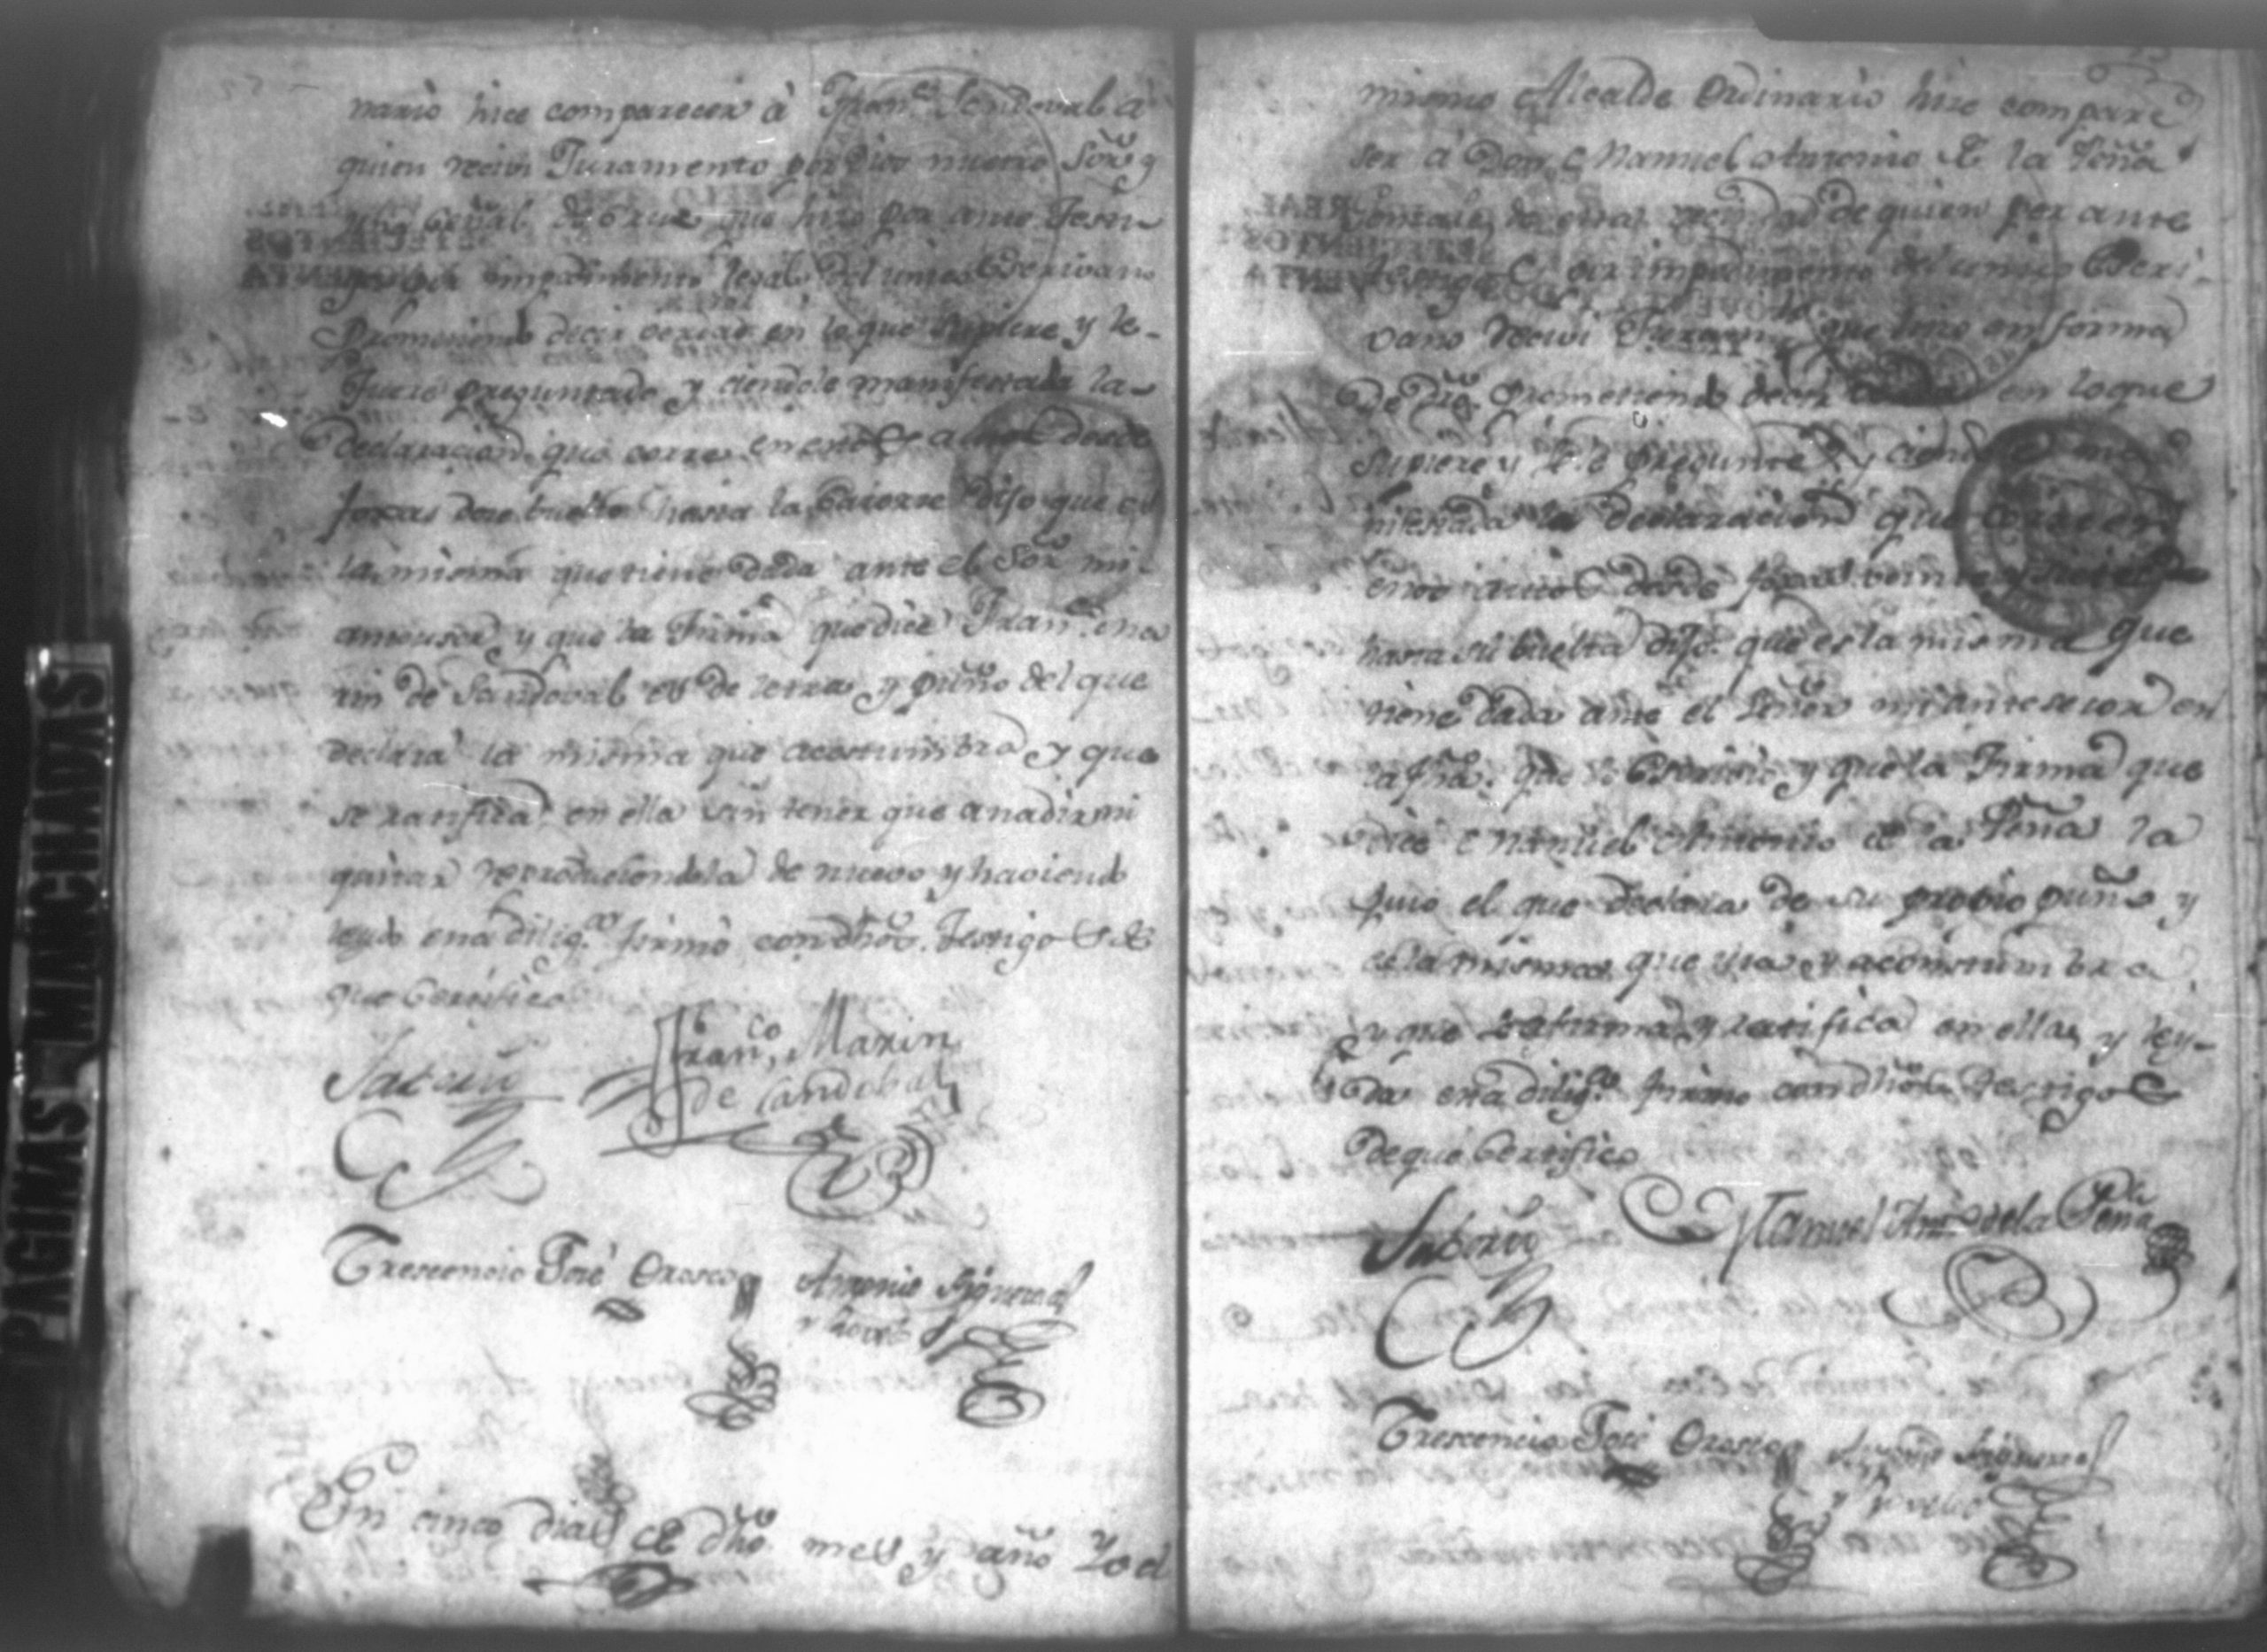 nario hice comparecer â Fran.co Sendoval a
quien recivi Juramento por Dios nuestro Señor y
señal de Cruz que hizo por ante Testi
gos por impedimento legal del unico Escrivano
Prometiendo decir verdad en lo que supiere y le
fuere preguntado y ciendole manifestada la
declaracion que corre en estos autos desde
foxas dose buelta hasta la catorse dijo que es
la misma que tiene dada ante el Sor mi
antecesor y que la Firma que dice Fran.co Ma
rin de Sandoval es de letra y puño del que
declara la misma que acostumbra y que
se ratifica en ella sin tener que anadir ni
quitar reproduciendola de nuevo y haviendo
leydo esta dilig.a firmó con dhos. Testigos de
que Certifico
Fran.co Marin
de Sandobal
Crescencio José Orosco Antonio Figueroa
En cinco dias de dho mes y año Yo el
PAGINAS MANCHADAS
mismo Alcalde Ordinario hice compare
ser a Don Manuel Antonio de la Peña
de esta vecindad de quien por ante
testigos por impedimento del unico Escri
vano recivi Juramento que hizo en forma
de dro. Prometiendo decir en lo que
supiere y se le pregunte y ciendo ma
nifestada la declaracion que corre en
estos autos desde foxas veinte
hasta su buelta dijo que es la misma que
tiene dada ante el Señor mi antesesor en
la fha. que se y que la Firma que
dice Manuel Antonio de la Peña la
puso el que declara de su propio puño y
es la misma que usa y acostumbra
y que se afirma y ratifica en ella y ley
da esta dilig.a firmó con dhos Testigos
de que Certifico
Manuel Ant.o de la Peña
Crescencio José Orosco Antonio Figueroa